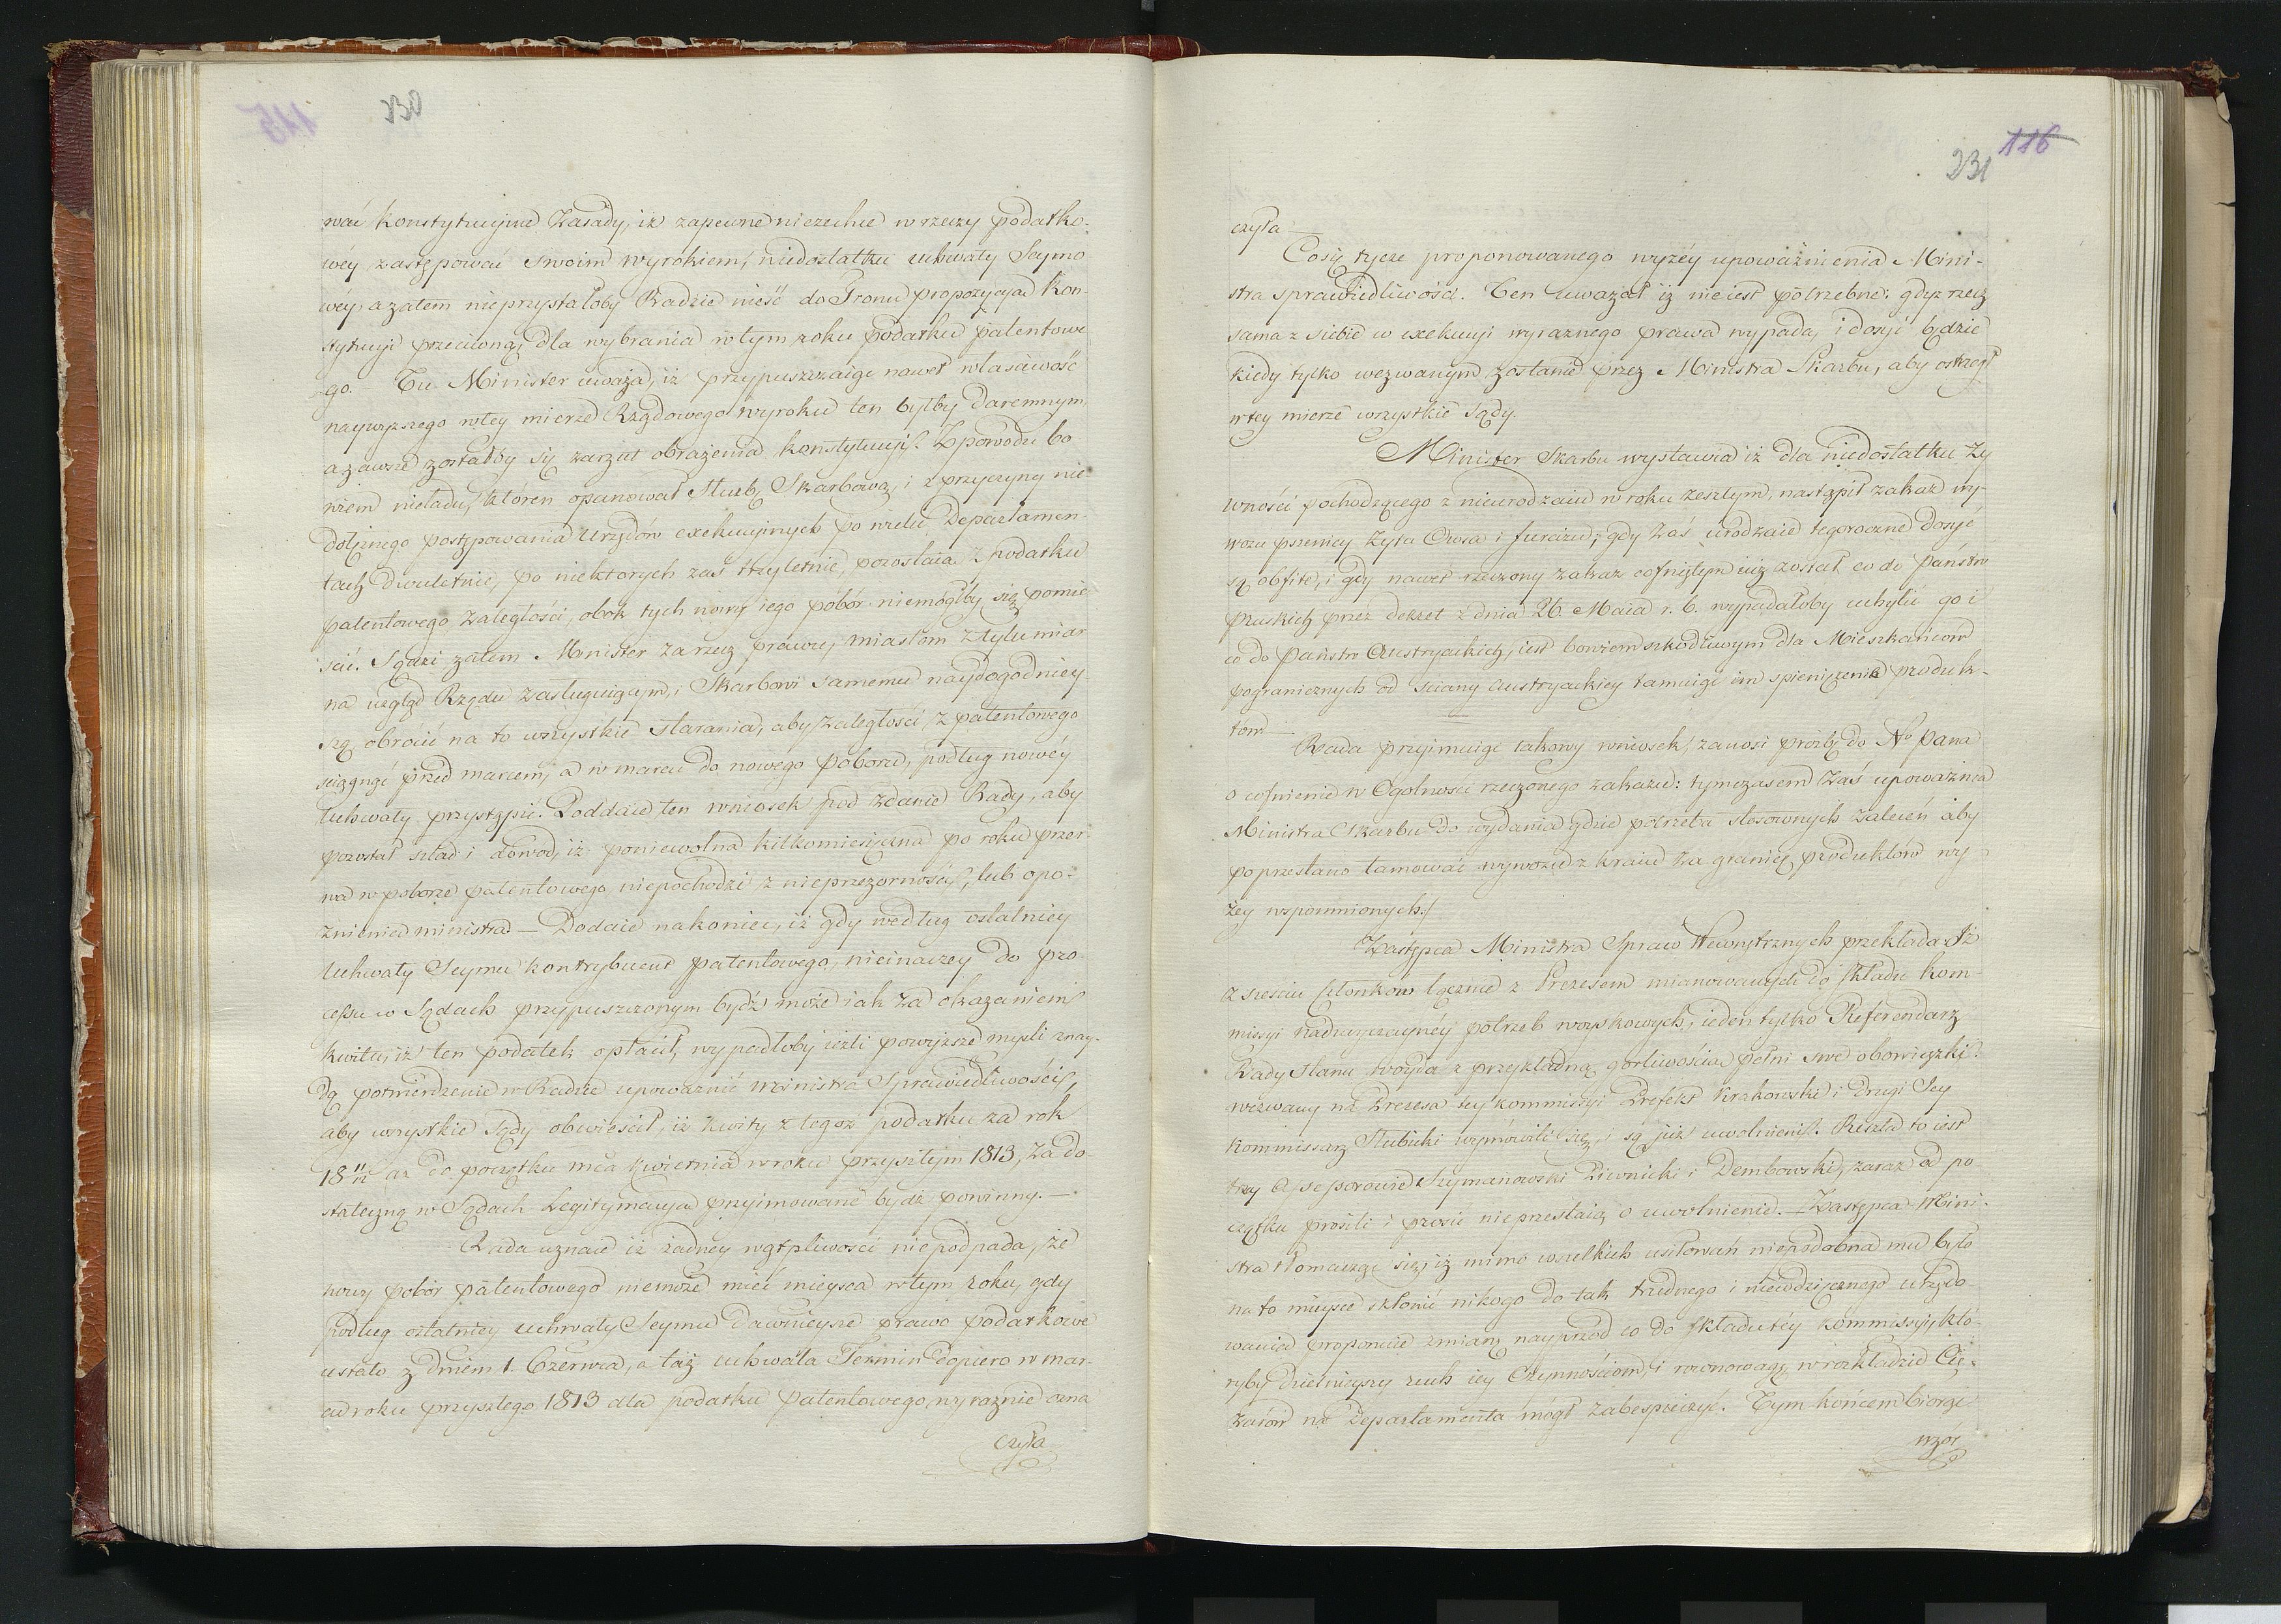 230
wać konstytucyjne Zasady, iż zapewne niezechce w rzeczy podatko-
wéy zastępować swoim wyrokiem, niedostatku uchwały Seymo
wéy, a zatem nieprzystałoby Radzie nieść do Tronu propozycyą Kon-
stytucyi przeciwną, dla wybrania w tym roku podatku patentowe
go. – Tu Minister uważa, iż przypuszczaiąc nawet własciwość
naywyższego w tey mierze Rządowego wyroku ten byłby daremnym,
a zawsze zostałby się zarzut obrażenia konstytucyi. Z powodu bo
wiem nieładu, któren opanował służbę Skarbową, i z przyczyny nie
dołężnego postępowania Urzędów exekucyinych po wielu Departamen-
tach dwuletnie, po niektorych zaś trzyletnie, pozostaią z podatku
patentowego zaległości, obok tych nowy iego pobór niemógłby się pomie
ścić. Sądzi zatem Minister za rzecz prawu, miastom z tylu miar
na wzgląd Rządu zasługuiącym, i Skarbowi samemu naydogodniey-
szą, obrócić na to wszystkie starania, aby zaległości z patentowego
ściągnąć przed marcem, a w marcu do nowego poboru, podług nowéy
Uchwały przystąpić. Poddaie ten wniosek pod zdanie Rady, aby
pozostał ślad i dowód, iż poniewolna kilkomiesięczna po roku przer
wa w poborze patentowego niepochodzi z nieprzezorności, lub opo-
źnienia ministra – Dodaie nakoniec, iż gdy według ostatniey
Uchwały Seymu kontrybuent patentowego, nieinaczey do pro-
cessu w Sądach przypuszczonym bydź może iak za okazaniem
kwitu, iż ten podatek opłacił, wypadłoby ieżli powyższe mysli znay-
dą potwierdzenie w Radzie upoważnić ministra Sprawiedliwości,
aby wszystkie Sądy obwieścił, iż kwity z tegoż podatku za rok
18 11/12 aż do początku mca kwietnia w roku przyszłym 1813, za do-
stateczną w Sądach Legitymacyą przyimowane bydź powinny. –
Rada uznaie iż żadney wątpliwosci niepodpada, że
nowy pobór patentowego niemoże mieć mieysca w tym roku, gdy
podług ostatniey uchwały Seymu dawnieysze prawo podatkowe
ustało z dniem 1. Czerwca, a taż uchwała Termin dopiero w mar-
cu roku przyszłego 1813 dla podatku Patentowego, wyraznie ozna
czyła
116
231
czyła –
Cosię tycze proponowanego wyżéy upoważnienia Mini-
stra sprawiedliwości. Ten uważał iż nieiest potrzebne: gdyż rzecz
sama z siebie w exekucyi wyraznego prawa wypada, i dosyć będzie
kiedy tylko wezwanym zostanie przez Ministra Skarbu, aby ostrzegł
w tey mierze wszystkie Sądy.
Minister Skarbu wystawia iż dla niedostatku Ży
wności pochodzącego z nieurodzaiu w roku zeszłym, nastąpił zakaz wy-
wozu pszenicy Żyta Owsa i furażu, gdy zaś urodzaie tegoroczne dosyć
są obfite, i gdy nawet rzeczony zakaz cofniętym iuż został co do Państw
Pruskich przez dekret z dnia 26 Maia r. b. wypadałoby uchylić go i
co do Państw Austryackich, iest bowiem szkodliwym dla Mieszkańców
pogranicznych od ściany Austryackiey tamuiąc im spieniężenie produk-
tów –
Rada przyimuiąc takowy wniosek, zanosi proźbę do No Pana
o cofnienie w Ogolnosci rzeczonego zakazu: tymczasem zaś upoważnia
Ministra Skarbu do wydania gdzie potrzeba stosownych zaleceń aby
poprzestano tamować wywozu z kraiu za granicę produktów wy
żey wspomnionych./
Zastępca Ministra Spraw Wewnętrznych przekłada Iż
z sześciu członków łącznie z Prezesem mianowanych do składu kom-
missyi nadzwyczaynéy potrzeb woyskowych, ieden tylko Referendarz
Rady Stanu Woyda z przykładną gorliwością pełni swe obowiązki.
wezwany na Prezesa tey kommissyi Prefekt Krakowski i drugi Jey
kommissarz Słubicki wymówili się, i są już uwolnieni. Reszta to iest
trzey Assessorowie Szymanowski Piwnicki i Dembowski, zaraz od po
czątku prosili i prosić nieprzestaią o uwolnienie. – Zastępca Mini-
stra tłomacząc się, iż mimo wszelkich usiłowań niepodobna mu było
na to mieysce skłonić nikogo do tak trudnego i niewdzięcznego urzędo
wania proponuie zmianę nayprzód co do składu téy kommissyi, któ-
ryby dzielnieyszy ruch iey Czynnościom, i rownowagę w rozkładzie Cię-
żarów na Departamenta mógł zabespieczyć. Tym końcem biorąc
wzor